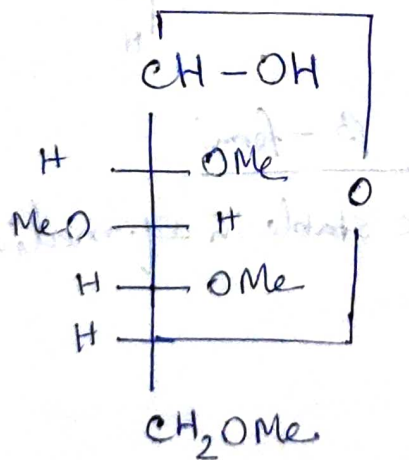 CH - OH
H OMe
O
MeO H
H OMe
H
CH₂OMe